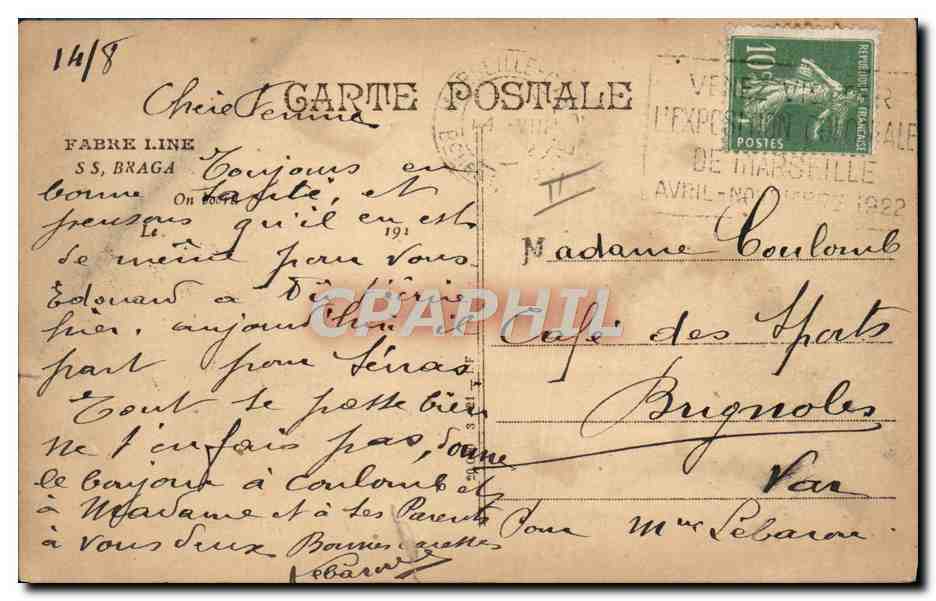 14/8
Chère Femme
CARTE POSTALE
FABRE LINE
S S, BRAGA
On board
Le 191
Toujours en
bonne santé, et
pensons qu'il en est
de même pour vous
Edouard a dû t'écrire
hier, aujourd'hui il
part pour Sénas
Tout se passe bien
ne t'en fais pas, donne
le bonjour à Coulomb et
à Madame et à ses Parents
à vous deux Bonnes caresses
Lebaron
10c
REPUBLIQUE FRANÇAISE
POSTES
VENEZ VISITER
L'EXPOSITION COLONIALE
DE MARSEILLE
AVRIL-NOVEMBRE 1922
II
Madame Coulomb
Café des Sports
Brignoles
Var
Pour Mme Lebaron
CPAPHIL